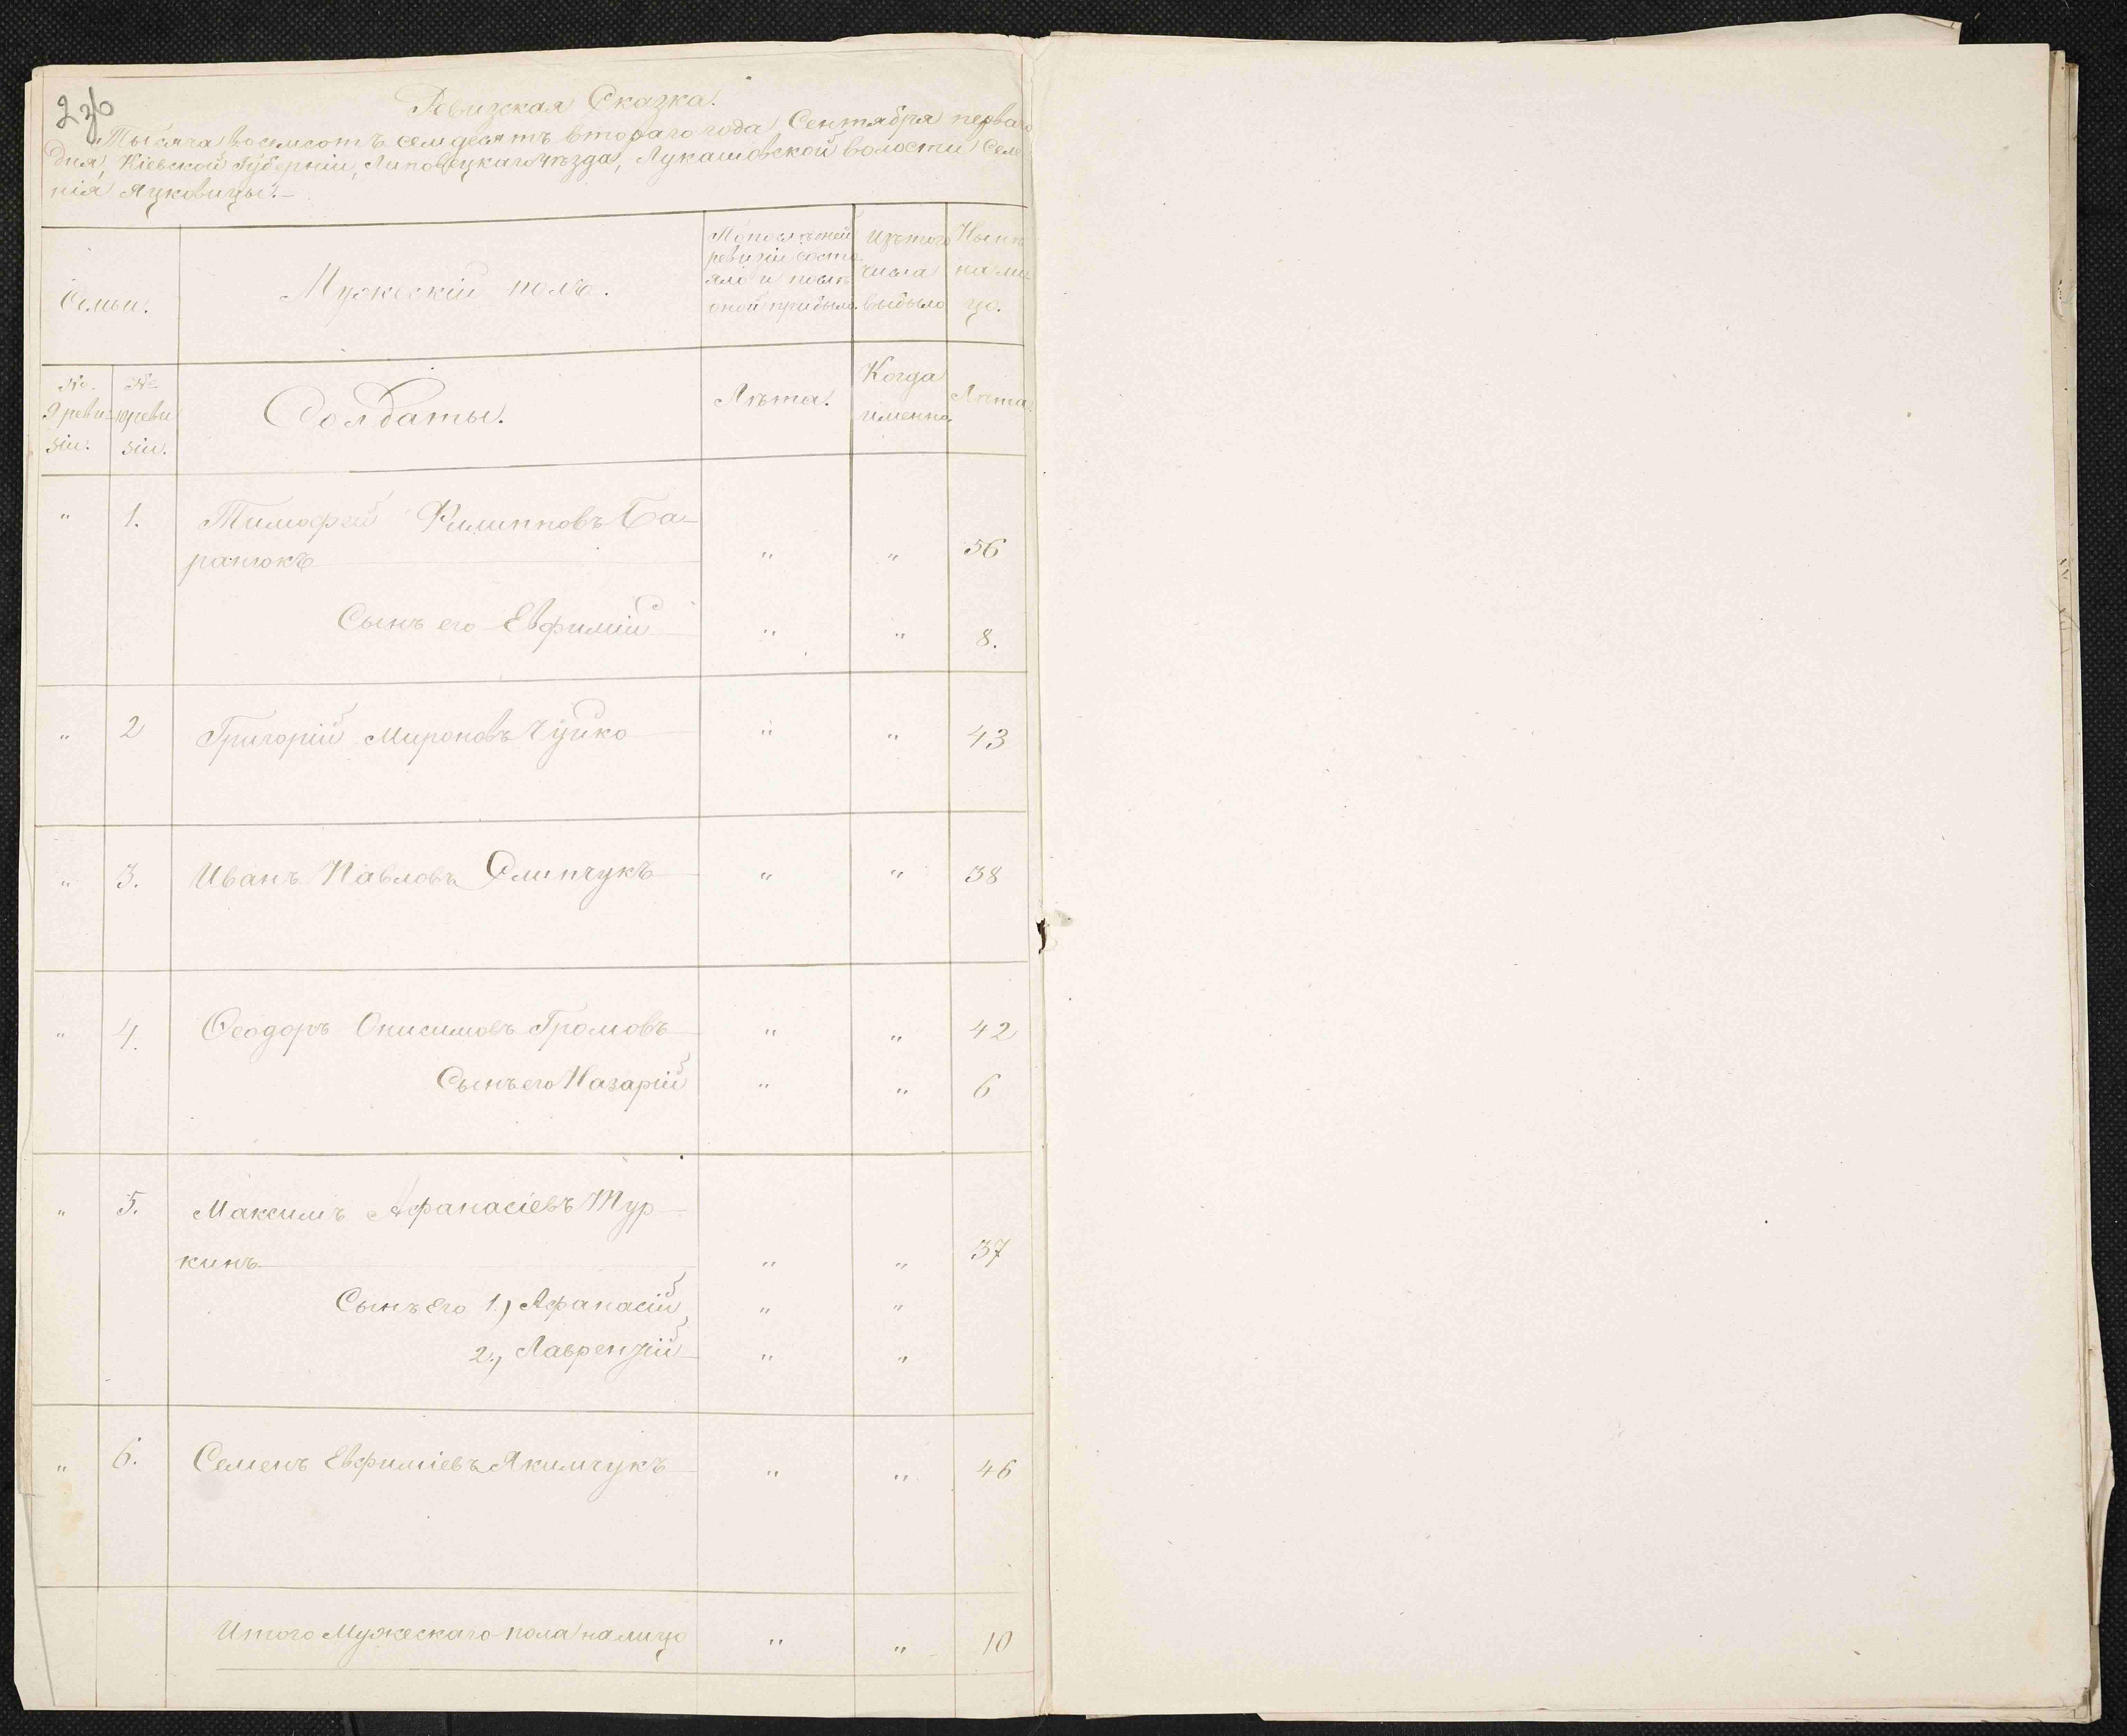 236
Ревизская Сказка.
Тысяча восемсотъ семдесятъ втораго года Сентября перваго
дня, Кіевской Губерніи, Липовецкаго уѣзда, Лукашовской волости Селе
нія Яцковицы.-
Семьи.
Мужескій полъ.
По последней
ревизіи состо
яло и послѣ
оной прибыло.
Изъ того
числа
выбыло
Нынѣ
на ли-
цо.
№ 9 реви-
зіи.
№ 10 реви
зіи.
Солдаты.
Лѣта.
Когда
именно.
Лѣта.
" 1. Тимофей Филипповъ Ба-
ранюкъ " " 56
Сынъ его Евфимій " " 8.
" 2 Григорій Мироновъ Чуйко " " 43
" 3. Иванъ Павловъ Слипчукъ " " 38
" 4. Ѳеодоръ Онисимовъ Громовъ " " 42
Сынъ его Назарій " " 6
" 5. Максимъ Афанасіевъ Тур-
кинъ " " 37
Сынъ Его 1.) Афанасій " "
2.) Лаврентій " "
" 6. Семенъ Евфиміевъ Якимчукъ " " 46
Итого Мужескаго пола налицо " " 10